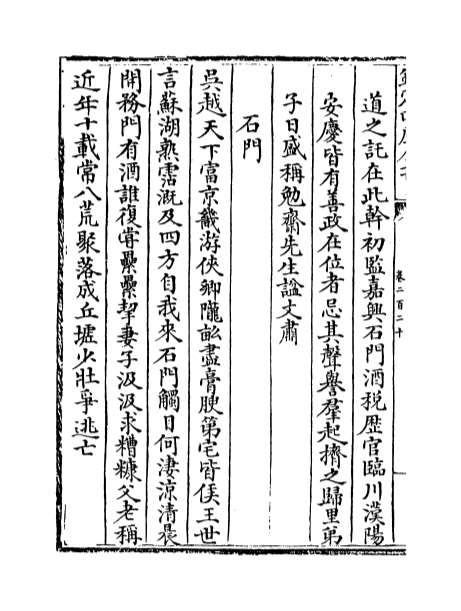 卷二百二十
道之託在此幹初監嘉興石門酒税歴官臨川漢陽
安慶皆有善政在位者忌其聲譽羣起擠之歸里弟
子日盛稱勉齋先生諡文肅
石門
吳越天下富京畿游俠卿隴畝盡膏腴第宅皆侯王世
言蘇湖熟霑溉及四方自我來石門觸目何淒涼清晨
開務門有酒誰復甞纍纍挈妻子汲汲求糟糠父老稱
近年十載常八荒聚落成丘墟少壯爭逃亡